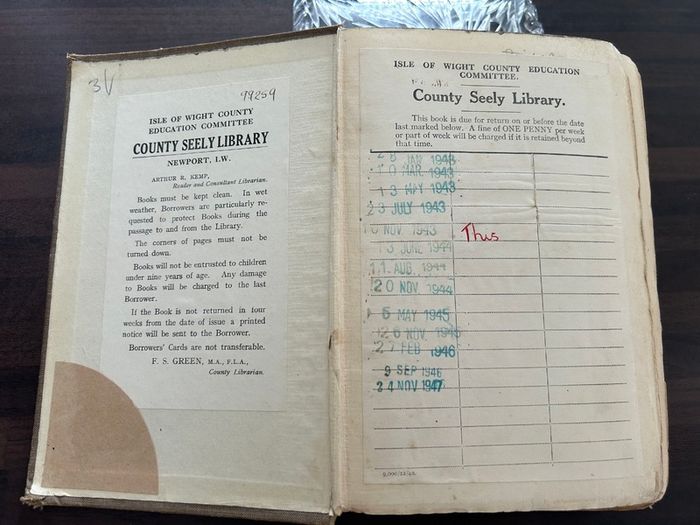 3V
99259
ISLE OF WIGHT COUNTY
EDUCATION COMMITTEE
COUNTY SEELY LIBRARY
NEWPORT, I.W.
ARTHUR R. KEMP,
Reader and Consultant Librarian.
Books must be kept clean. In wet
weather, Borrowers are particularly re-
quested to protect Books during the
passage to and from the Library.
The corners of pages must not be
turned down.
Books will not be entrusted to children
under nine years of age. Any damage
to Books will be charged to the last
Borrower.
If the Book is not returned in four
weeks from the date of issue a printed
notice will be sent to the Borrower.
Borrowers' Cards are not transferable.
F. S. GREEN, M.A., F.L.A.,
County Librarian.
ISLE OF WIGHT COUNTY EDUCATION
COMMITTEE.
County Seely Library.
This book is due for return on or before the date
last marked below. A fine of ONE PENNY per week
or part of week will be charged if it is retained beyond
that time.
JAN 1943
10 MAR 1943
13 MAY 1943
23 JULY 1943
10 NOV. 1943
This
13 JUNE 1944
11 AUG. 1944
20 NOV 1944
5 MAY 1945
26 NOV 1945
27 FEB 1946
9 SEP 1946
24 NOV 1947